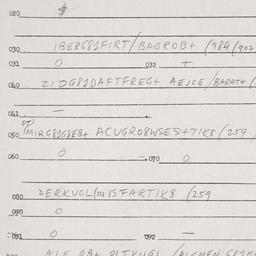 020 $
030 IBERG81FIRT/BAGROB+ (984/902
031 0 032 +
040 ZIDG81DAFTFREG+ AEJCE/BARAT+/
041 —
050 MIRG81G8EB+ ACUGROBWSES+TIK8 (259
060 0 070 0
080 DERKUGL(M)ISFARTIK8 (259
090 0
091 0 092 —